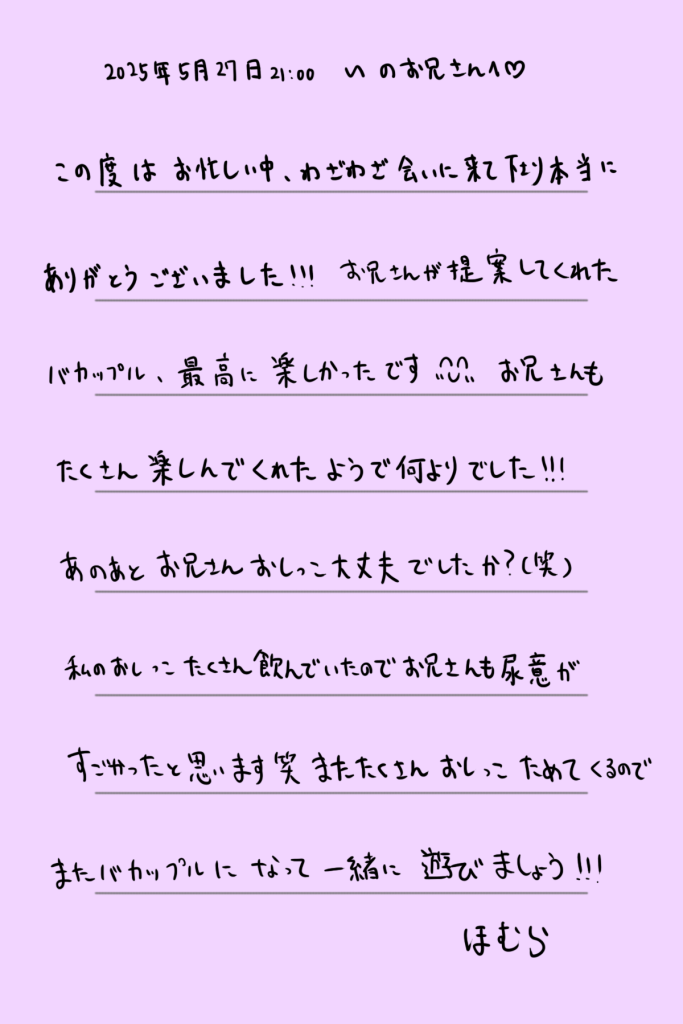 2025年5月27日21:00 い のお兄さんへ♡
この度は お忙しい中、わざわざ 会いに来て下さり本当に
ありがとうございました!!! お兄さんが提案してくれた
バカップル、最高に 楽しかったです お兄さんも
たくさん 楽しんでくれたようで何よりでした!!!
あのあと お兄さん おしっこ大丈夫でしたか?(笑)
私のおしっこ たくさん飲んでいたのでお兄さんも尿意が
すごかったと思います笑 またたくさん おしっこ ためてくるので
またバカップルに なって 一緒に 遊びましょう!!!
ほむら